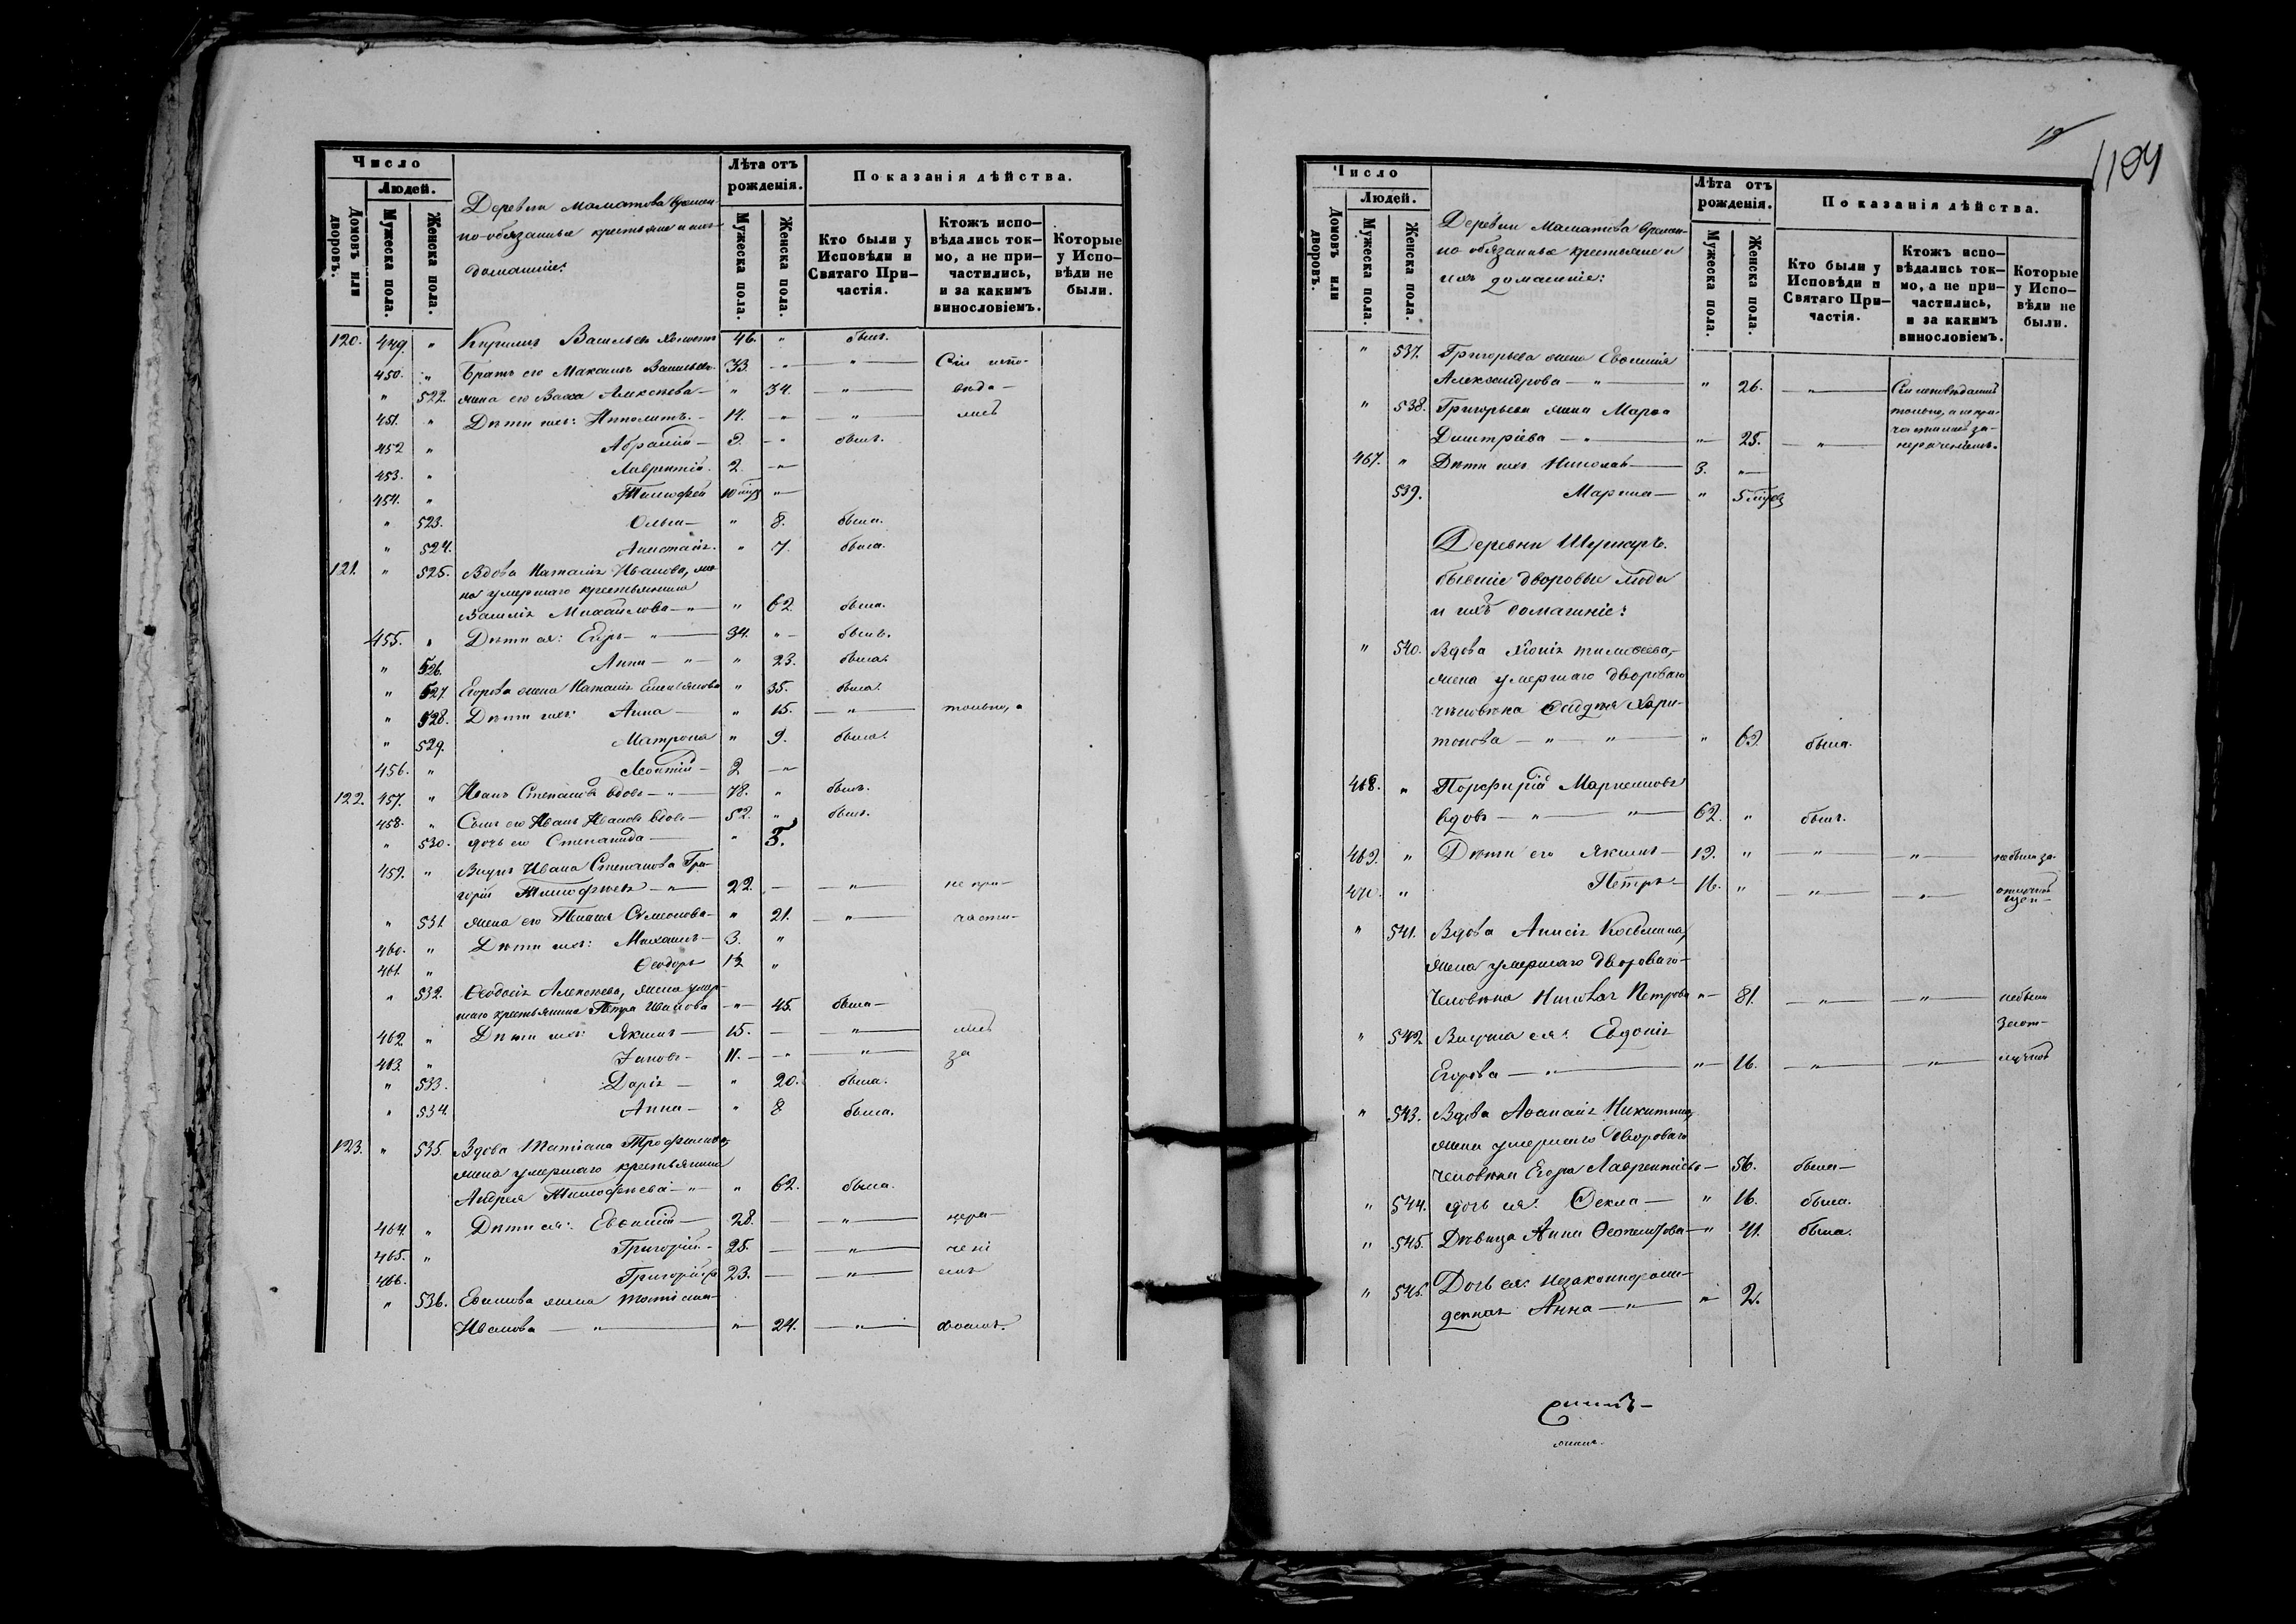 Число
Людей.
Домовъ или дворовъ.
Мужеска пола.
Женска пола.
Деревни Маматова времен-
но-обязанные крестьяне и ихъ
домашніе:
Лѣта отъ рожденія.
Мужеска пола.
Женска пола.
Показанія дѣйства.
Кто были у Исповѣди и Святаго При-частія.
Ктожъ испо-вѣдались ток-мо, а не при-частились, и за какимъ винословіемъ.
Которые у Испо-вѣди не были.
120. 449. " Кириллъ Васильевъ 46. " былъ.
450. " Братъ его Максимъ Васильевъ 33. " " Сіи испо-
" 522. жена его Васса Алексѣева " 34. " вѣда-
451. " Дѣти ихъ: Ипполитъ. 14. " " лись
452 " Абрамій 9. " былъ.
453. " Лаврентій. 2. "
454. " Тимофей 10 "
" 523. Ольга " 8. была.
" 524. Анастасія. " 7. была.
121. " 525. Вдова Наталія Иванова, же-
на умершаго крестьянина
Василія Михайлова " " 62. была.
455. " Дѣти ея: Егоръ " 34. " былъ.
" 526. Анна " " 23. была.
" 527. Егорова жена Наталія Емельянова " 35. была.
" 528. Дѣти ихъ: Анна " 15. " только, а
" 529. Матрона " 9. была.
456. " Леонтій 2 "
122. 457. " Иванъ Степановъ вдовъ " 78. " былъ.
458. " Сынъ его Иванъ Ивановъ вдовъ 52. " былъ.
" 530. дочь его Степанида " 5.
459. " Внукъ Ивана Степанова Гри-
горій Тимофѣевъ " 22. " не при-
" 531. жена его Симеонова " 21. " части-
460. " Дѣти ихъ: Михаилъ 3. "
461. " Ѳеодоръ 1½ "
" 532. Ѳеодосія Алексѣева, жена умер-
шаго крестьянина Петра Иванова " 45. была
462 " Дѣти ихъ: Якимъ 15. " лись
463. " Іаковъ 11. " " за
" 533. Дарія " 20. была.
" 534. Анна " 8 была.
123. " 535. Вдова Татіана Трофимова,
жена умершаго крестьянина
Андрея Тимофѣева " " 62. была.
464. " Дѣти ея: Евѳимій 28. " нера-
465. " Григорій 25. " чені
466. Григорій 23. " емъ
" 536. Ефимова жена Татіана
Иванова " " 24. "
1104
Число
Людей.
Домовъ или дворовъ.
Мужеска пола.
Женска пола.
Деревни Маматова времен-
но обязанные крестьяне и
ихъ домашніе:
Лѣта отъ рожденія.
Мужеска пола.
Женска пола.
Показанія дѣйства.
Кто были у Исповѣди и Святаго При-частія.
Ктожъ испо-вѣдались ток-мо, а не при-частились, и за какимъ винословіемъ.
Которые у Испо-вѣди не были.
" 537. Григорьева жена Евѳимія
Александрова " " 26. " Сіи исповѣдались
" 538. Григорьева жена Марѳа только, а не при-
Димитріева " " 25. " частились за-
нераченіемъ.
467. " Дѣти ихъ Николай 3. "
539. Марина " 5
Деревни Шушкаръ.
бывшіе дворовые люди
и ихъ домашніе:
" 540. Вдова Хіонія Тимоѳеева,
жена умершаго двороваго
человѣка Хари-
тонова " " " 63. была.
468. " Порфирій Маркелловъ
вдовъ " " 62. " былъ.
469. " Дѣти его Якимъ 19. " " " не были за-
470. " Петръ 16. " " " отлуч-
" 541. Вдова Анисія Козьмина,
жена умершаго двороваго
человѣка Николая Петрова " 81. " " не были
" 542 Внучка ея: Евдокія за от-
Егорова " " 16. " " лучкой
" 543. Вдова Аѳанасія Никитина,
жена умершаго двороваго
человѣка Егора Лаврентьева 56. была
" 544. дочь ея: Ѳекла " 16. была.
" 545. Дѣвица Анна " 41. была.
" 546. Дочь ея: незаконнорож-
денная Анна " " 2.